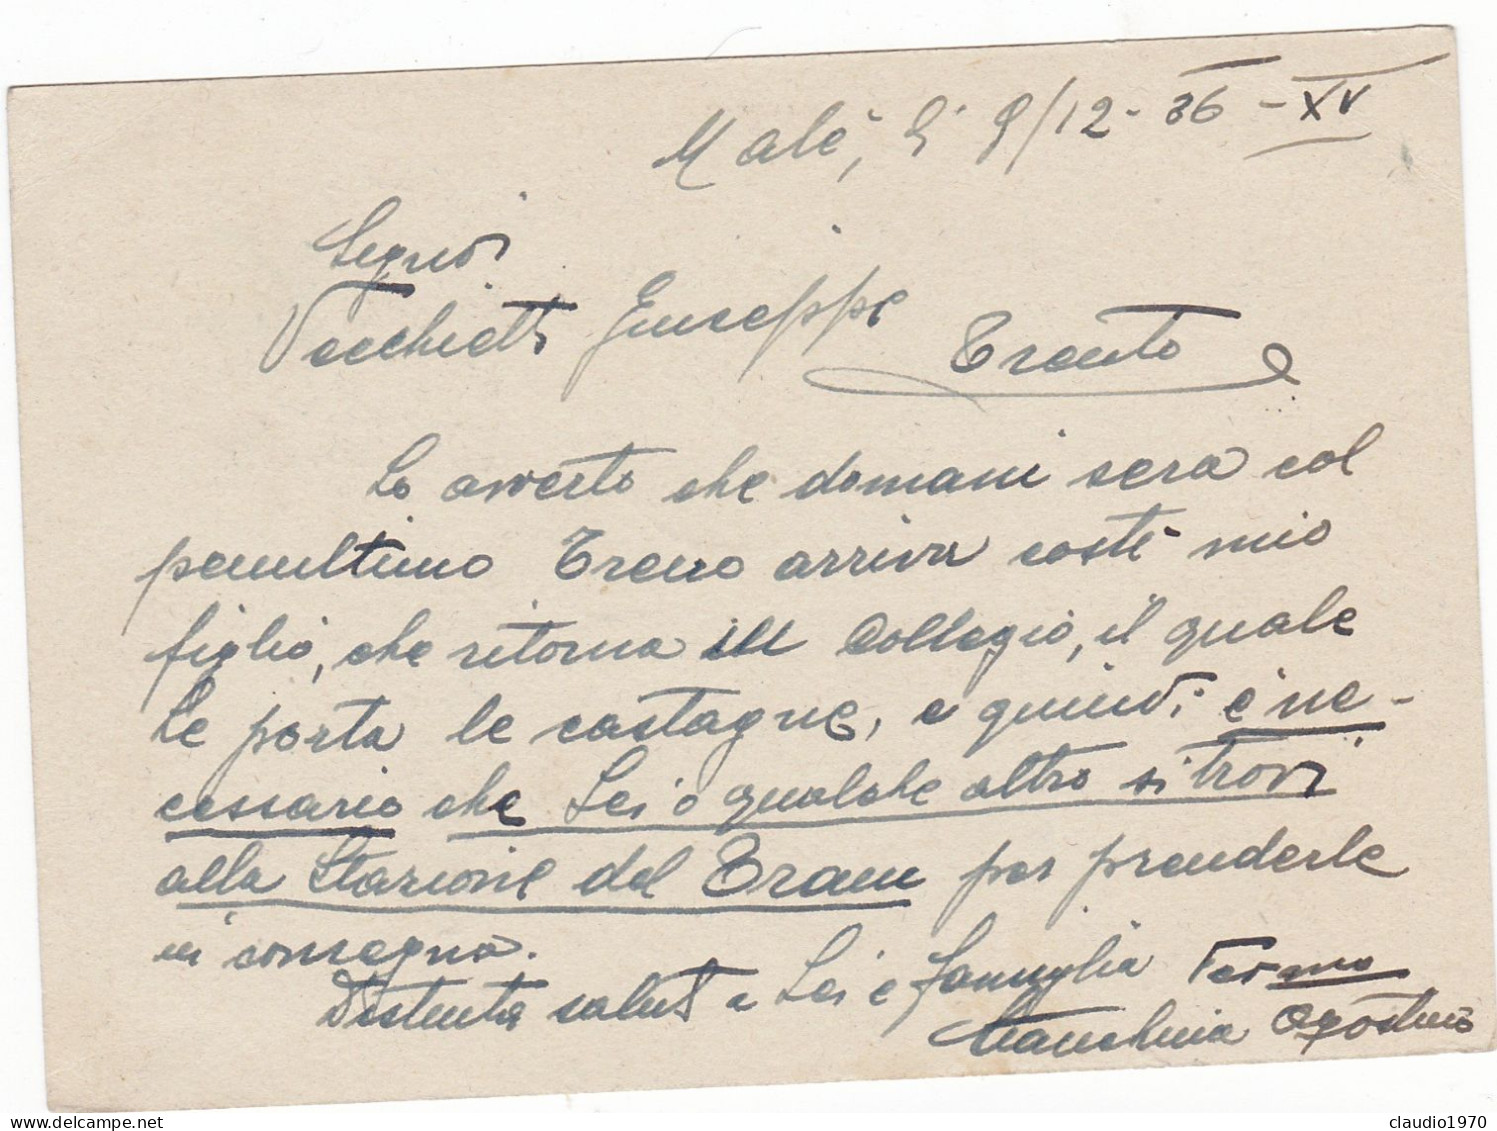 Malè, li 9/12-36-XV
Signor
Vecchietti Giuseppe
Trento
Lo avverto che domani sera col
penultimo Treno arriva costì mio
figlio, che ritorna in Collegio, il quale
Le porta le castagne, e quindi è ne-
cessario che Lei o qualche altro si trovi
alla Stazione del Tram per prenderle
in consegna.
Distinti saluti a Lei e famiglia
Agostino
claudio1970